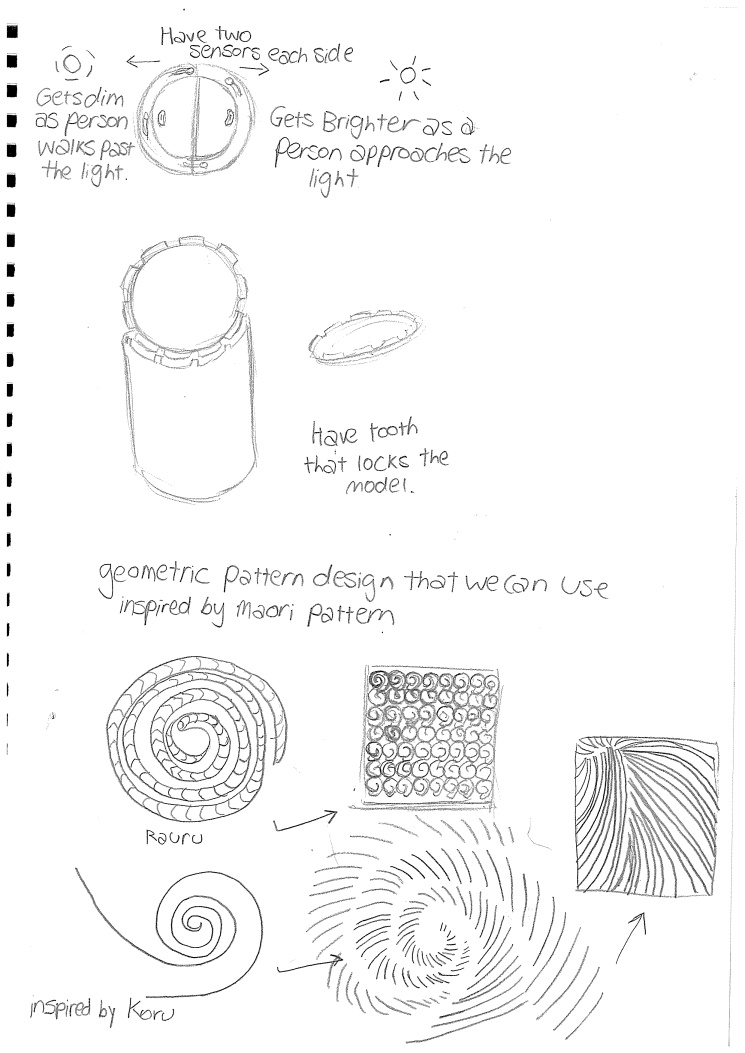 Have two
sensors each side
Gets dim
as person
walks past
the light.
Gets Brighter as a
person approaches the
light
Have tooth
that locks the
model.
geometric pattern design that we can use
inspired by maori pattern
Rauru
inspired by Koru